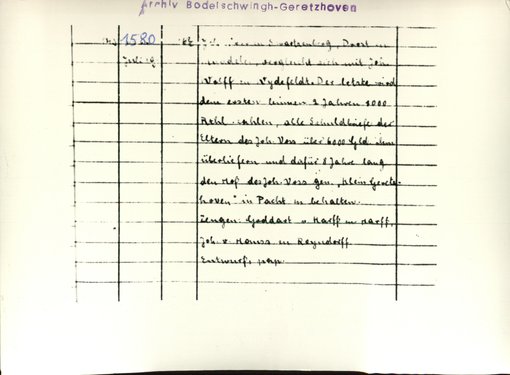 Archiv Bodelschwingh-Geretzhoven
1580
Juli 19
Joh. Voss in Drost in
vergleicht sich mit Joh.
Wolff in Vydefeldt. Der letzte wird
dem ersten binnen 2 Jahren 1000
Rthl. zahlen, alle Schuldbriefe der
Eltern des Joh. Voss über 4000 Gld. ihm
überliefern und dafür 8 Jahre lang
den Hof des Joh. Voss gen. "Klein Geretz-
hoven" in Pacht zu behalten.
Zeugen: Goddart v. Harff zu Harff,
Joh. v. in Reyndorff
Entwurf, pap.